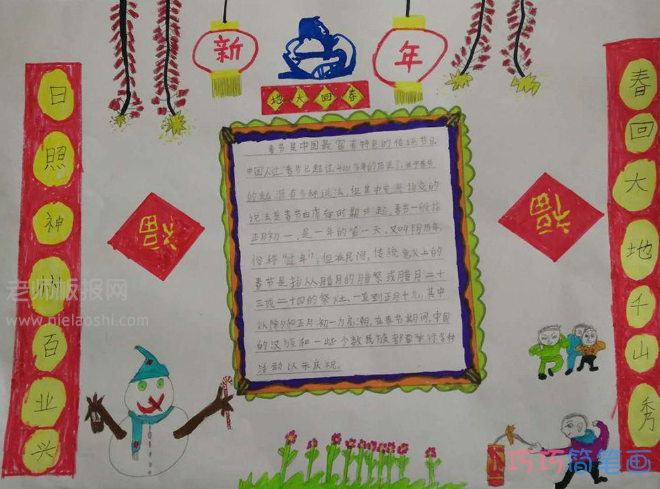 新年
地大回春
日照神州百业兴
春回大地千山秀
福
福
春节是中国最富有特色的传统节日,
中国人过春节已超过4000多年的历史了,关于春节
的起源有多种说法,但其中
说法是春节由虞舜时期兴起。春节一般指
正月初一,是一年的第一天,又叫阴历年,
俗称“过年”,但在民间,传统意义上的
春节是指从腊月的腊祭或腊月二十
三或二十四的祭灶,一直到正月十五,其中
以除夕和正月初一为高潮。在春节期间,中国
的汉族和一些少数民族都要举行各种
活动以示庆祝。
老师板报网
www.pielaoshi.com
巧巧简笔画